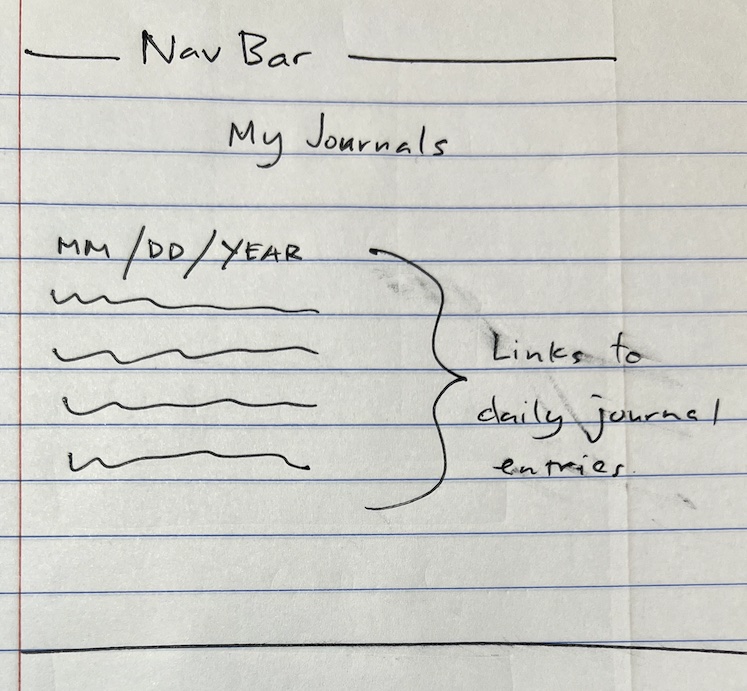 Nav Bar
My Journals
MM/DD/YEAR
Links to
daily journal
entries.